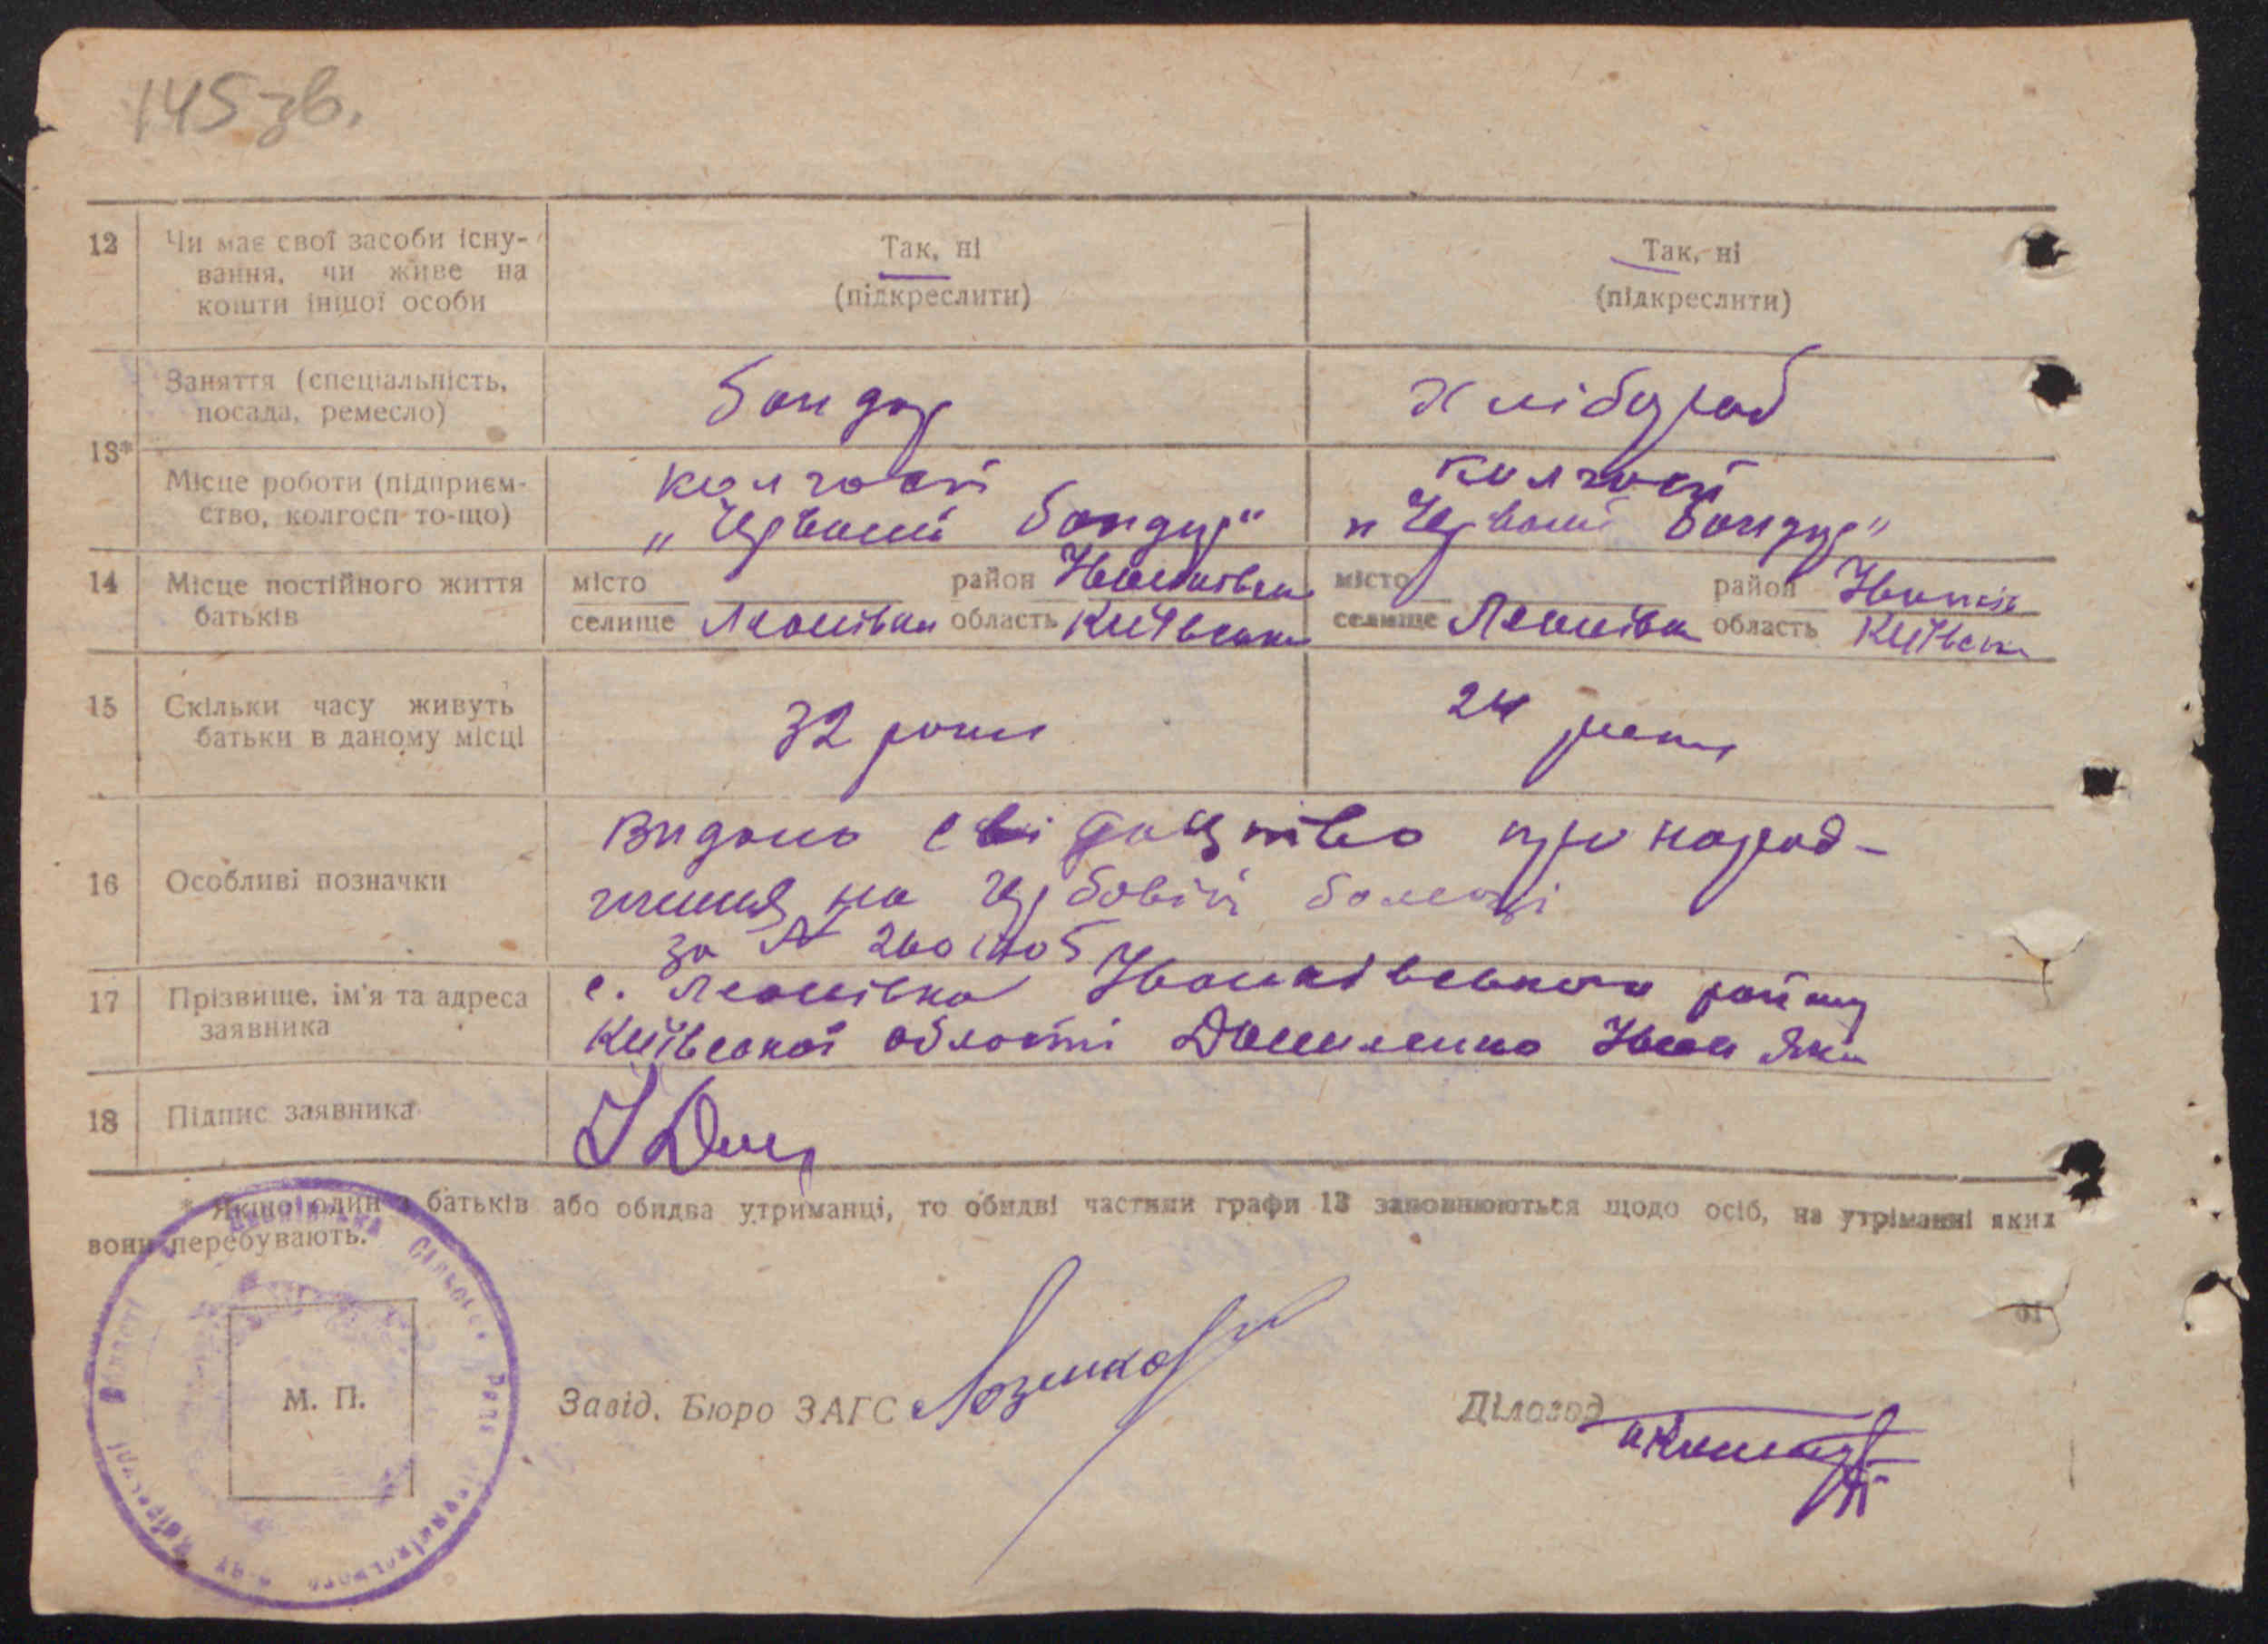 145 зв.
12 Чи має свої засоби існу-
вання, чи живе на
кошти іншої особи
Так, ні
(підкреслити)
Так, ні
(підкреслити)
13*
Заняття (спеціальність,
посада, ремесло)
бондар
хлібороб
Місце роботи (підприєм-
ство, колгосп то-що)
колгосп
„Червоний бондар"
колгосп
„Червоний бондар"
14 Місце постійного життя
батьків
місто район Іванківськ
селище Леонівка область Київська
місто район Іванків
селище Леонівка область Київськ
15 Скільки часу живуть
батьки в даному місці
32 роки
24 роки
16 Особливі позначки
видано свідоцтво про народ-
ження на
за №
17 Прізвище, ім'я та адреса
заявника
с. Леонівка Іванківського району
Київської області Даниленко Іван Яки
18 Підпис заявника
* Якщо один з батьків або обидва утриманці, то обидві частини графи 13 заповнюються щодо осіб, на утріманні яких
вони перебувають.
Сільська Рада
М. П.
Завід. Бюро ЗАГС
Діловод